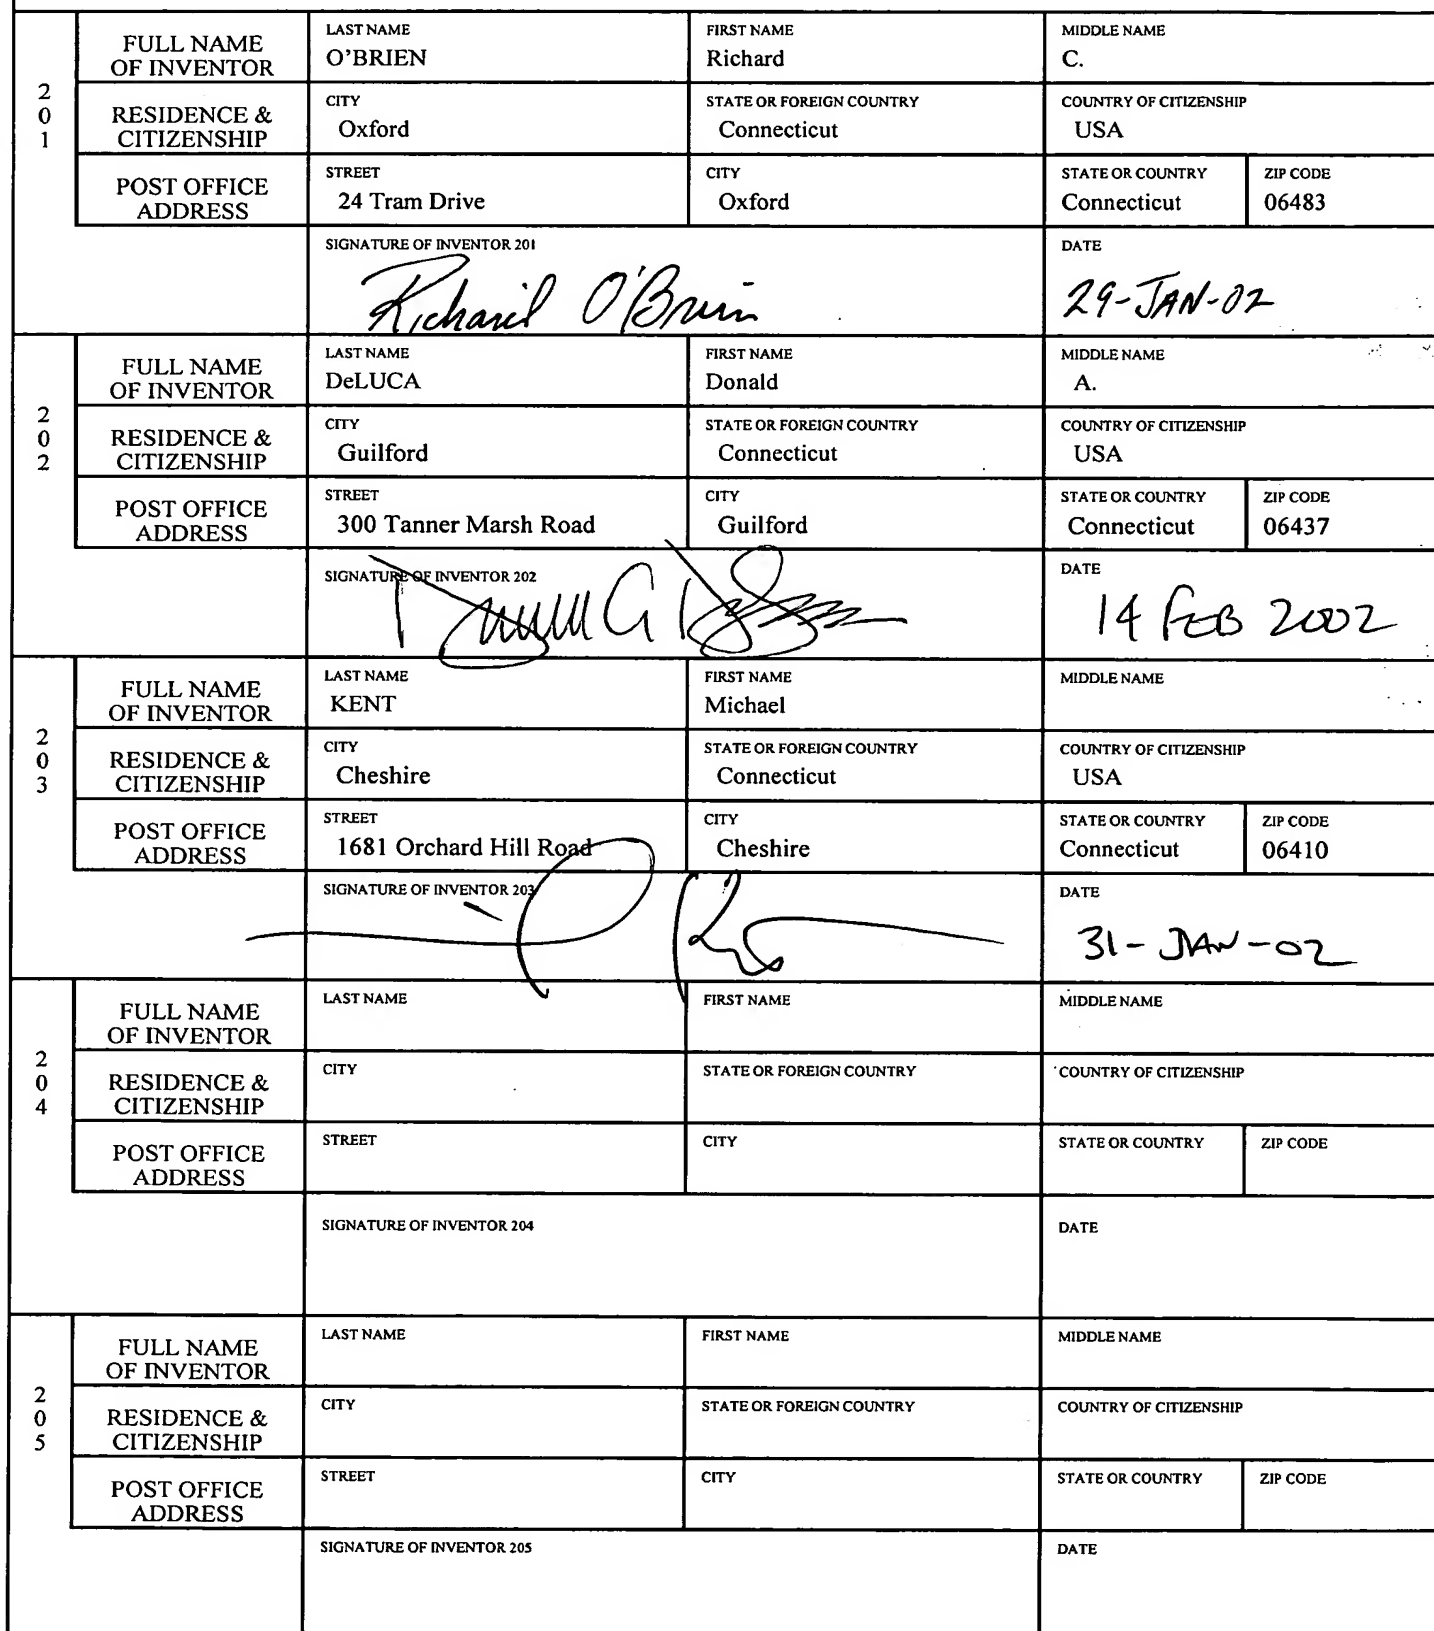 201
FULL NAME OF INVENTOR
LAST NAME O'BRIEN
FIRST NAME Richard
MIDDLE NAME C.
RESIDENCE & CITIZENSHIP
CITY Oxford
STATE OR FOREIGN COUNTRY Connecticut
COUNTRY OF CITIZENSHIP USA
POST OFFICE ADDRESS
STREET 24 Tram Drive
CITY Oxford
STATE OR COUNTRY Connecticut
ZIP CODE 06483
SIGNATURE OF INVENTOR 201
Richard O'Brien
DATE
29-JAN-02
202
FULL NAME OF INVENTOR
LAST NAME DeLUCA
FIRST NAME Donald
MIDDLE NAME A.
RESIDENCE & CITIZENSHIP
CITY Guilford
STATE OR FOREIGN COUNTRY Connecticut
COUNTRY OF CITIZENSHIP USA
POST OFFICE ADDRESS
STREET 300 Tanner Marsh Road
CITY Guilford
STATE OR COUNTRY Connecticut
ZIP CODE 06437
SIGNATURE OF INVENTOR 202
DATE
14 FEB 2002
203
FULL NAME OF INVENTOR
LAST NAME KENT
FIRST NAME Michael
MIDDLE NAME
RESIDENCE & CITIZENSHIP
CITY Cheshire
STATE OR FOREIGN COUNTRY Connecticut
COUNTRY OF CITIZENSHIP USA
POST OFFICE ADDRESS
STREET 1681 Orchard Hill Road
CITY Cheshire
STATE OR COUNTRY Connecticut
ZIP CODE 06410
SIGNATURE OF INVENTOR 203
DATE
31-JAN-02
204
FULL NAME OF INVENTOR
LAST NAME
FIRST NAME
MIDDLE NAME
RESIDENCE & CITIZENSHIP
CITY
STATE OR FOREIGN COUNTRY
COUNTRY OF CITIZENSHIP
POST OFFICE ADDRESS
STREET
CITY
STATE OR COUNTRY
ZIP CODE
SIGNATURE OF INVENTOR 204
DATE
205
FULL NAME OF INVENTOR
LAST NAME
FIRST NAME
MIDDLE NAME
RESIDENCE & CITIZENSHIP
CITY
STATE OR FOREIGN COUNTRY
COUNTRY OF CITIZENSHIP
POST OFFICE ADDRESS
STREET
CITY
STATE OR COUNTRY
ZIP CODE
SIGNATURE OF INVENTOR 205
DATE